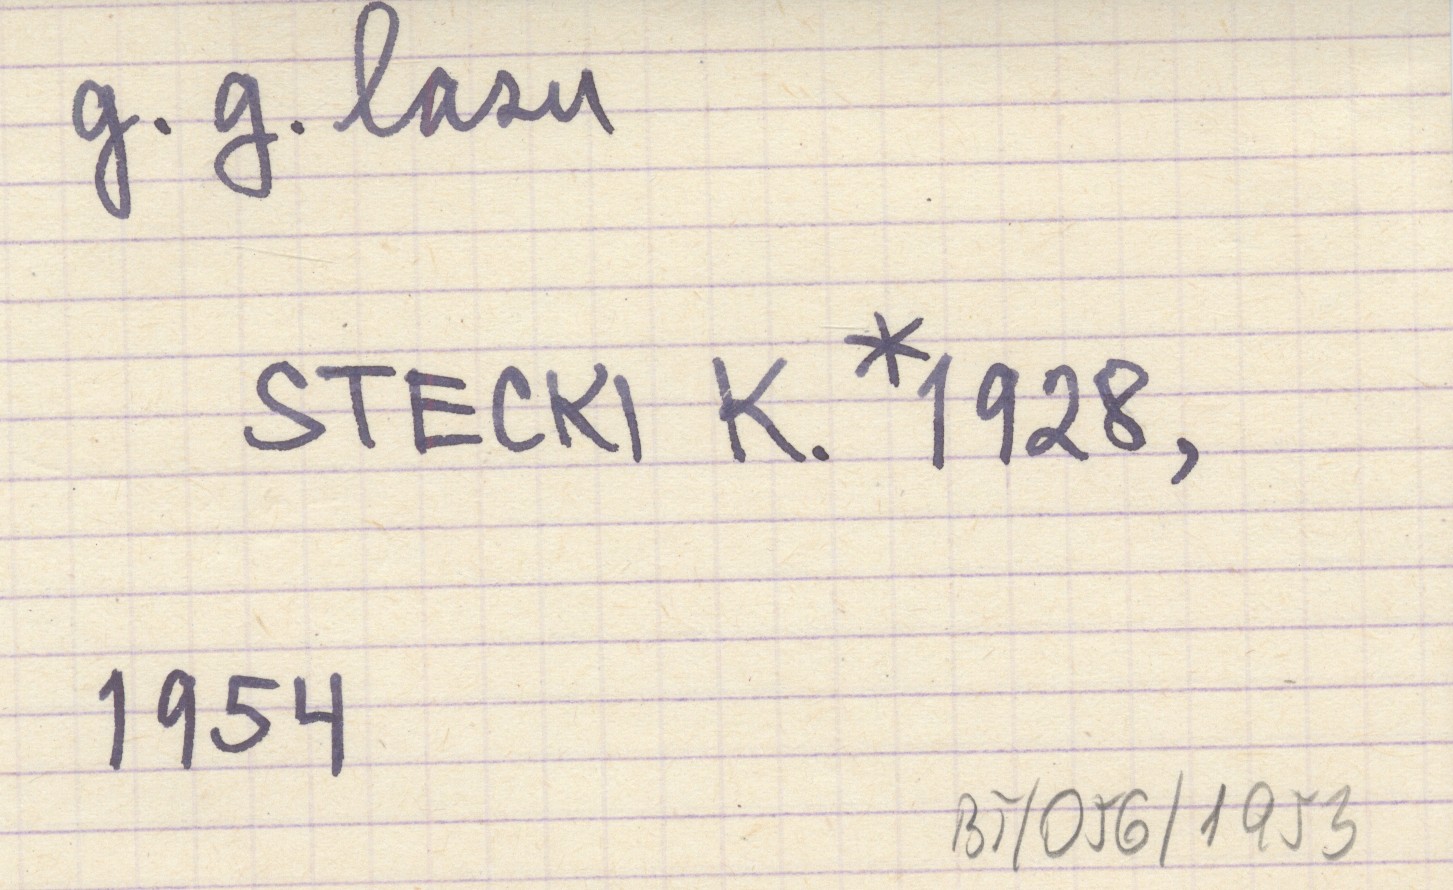 g. g. lasu
STECKI K. *1928,
1954
BT/056/1953